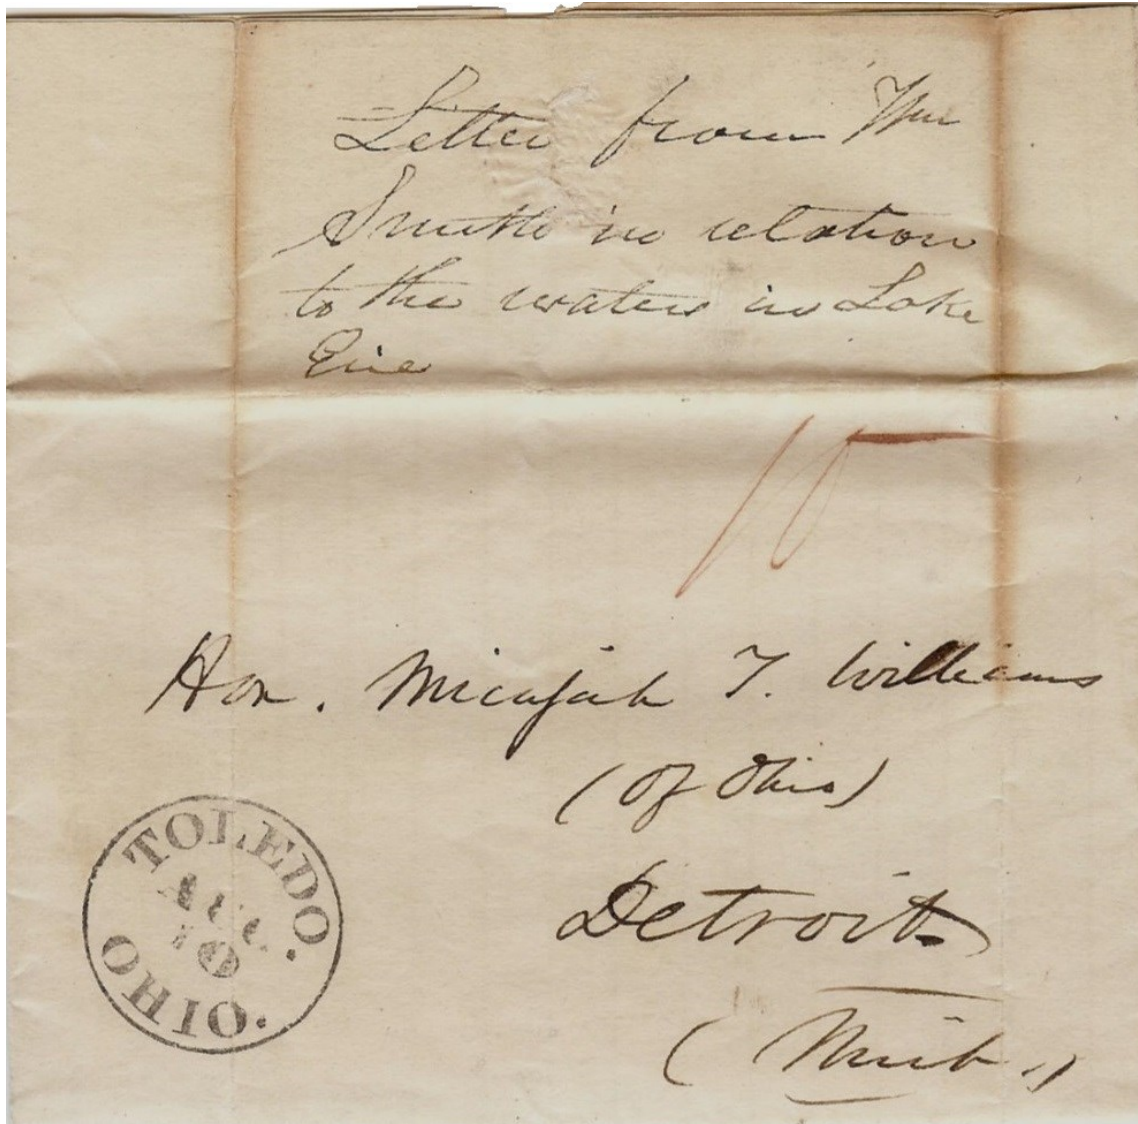 Letter from Wm
Smith in relation
to the waters in Lake
Erie
10
Hon. Micajah T. Williams
(of Ohio)
Detroit
(Mich.)
TOLEDO.
AUG
10
OHIO.